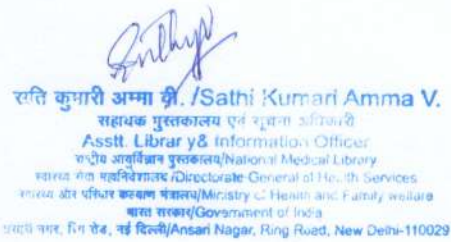 सति कुमारी अम्मा वी. /Sathi Kumari Amma V.
सहायक पुस्तकालय एवं सूचना अधिकारी
Asstt. Library & Information Officer
राष्ट्रीय आयुर्विज्ञान पुस्तकालय/National Medical Library
स्वास्थ्य सेवा महानिदेशालय/Directorate General of Health Services
स्वास्थ्य और परिवार कल्याण मंत्रालय/Ministry of Health and Family welfare
भारत सरकार/Government of India
नगर, रिंग रोड, नई दिल्ली/Ansari Nagar, Ring Road, New Delhi-110029